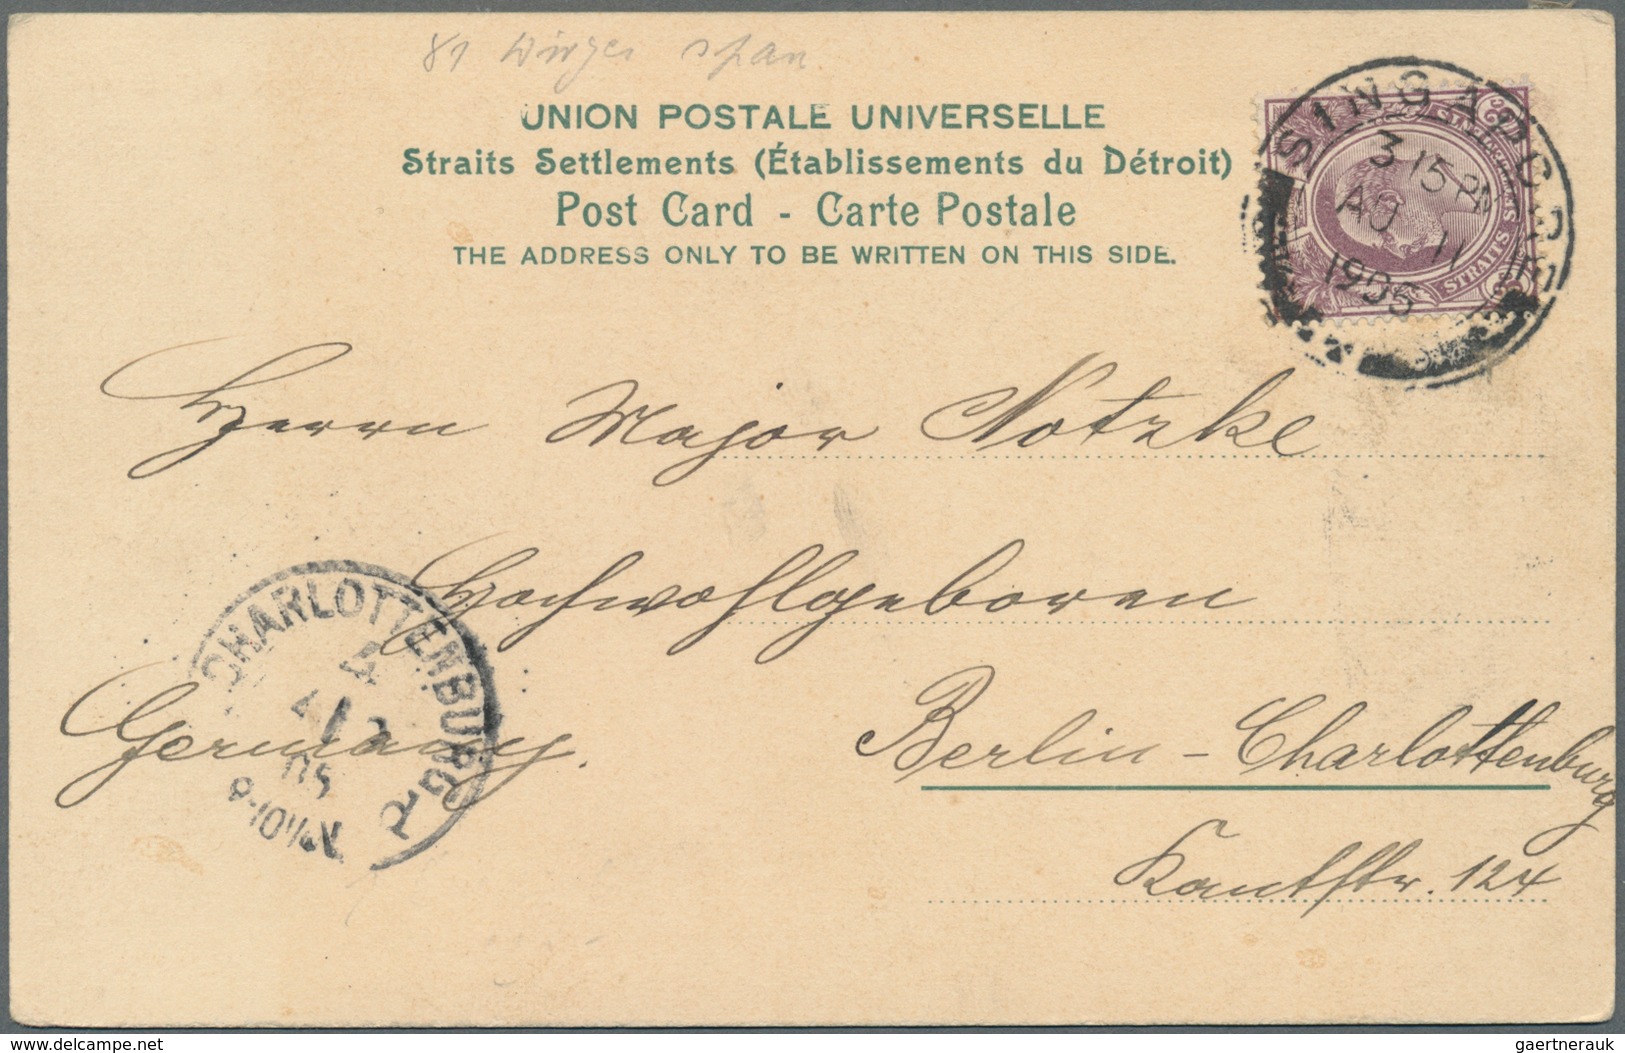 UNION POSTALE UNIVERSELLE
Straits Settlements (Établissements du Détroit)
Post Card - Carte Postale
THE ADDRESS ONLY TO BE WRITTEN ON THIS SIDE.
SINGAPORE
3 15 PM
AU 11
1905
STRAITS
Herrn Major Notzke
Hochwohlgeboren
CHARLOTTENBURG
05
Germany.
Berlin - Charlottenburg
Kantstr. 124
delcampe.net
gaertnerauk